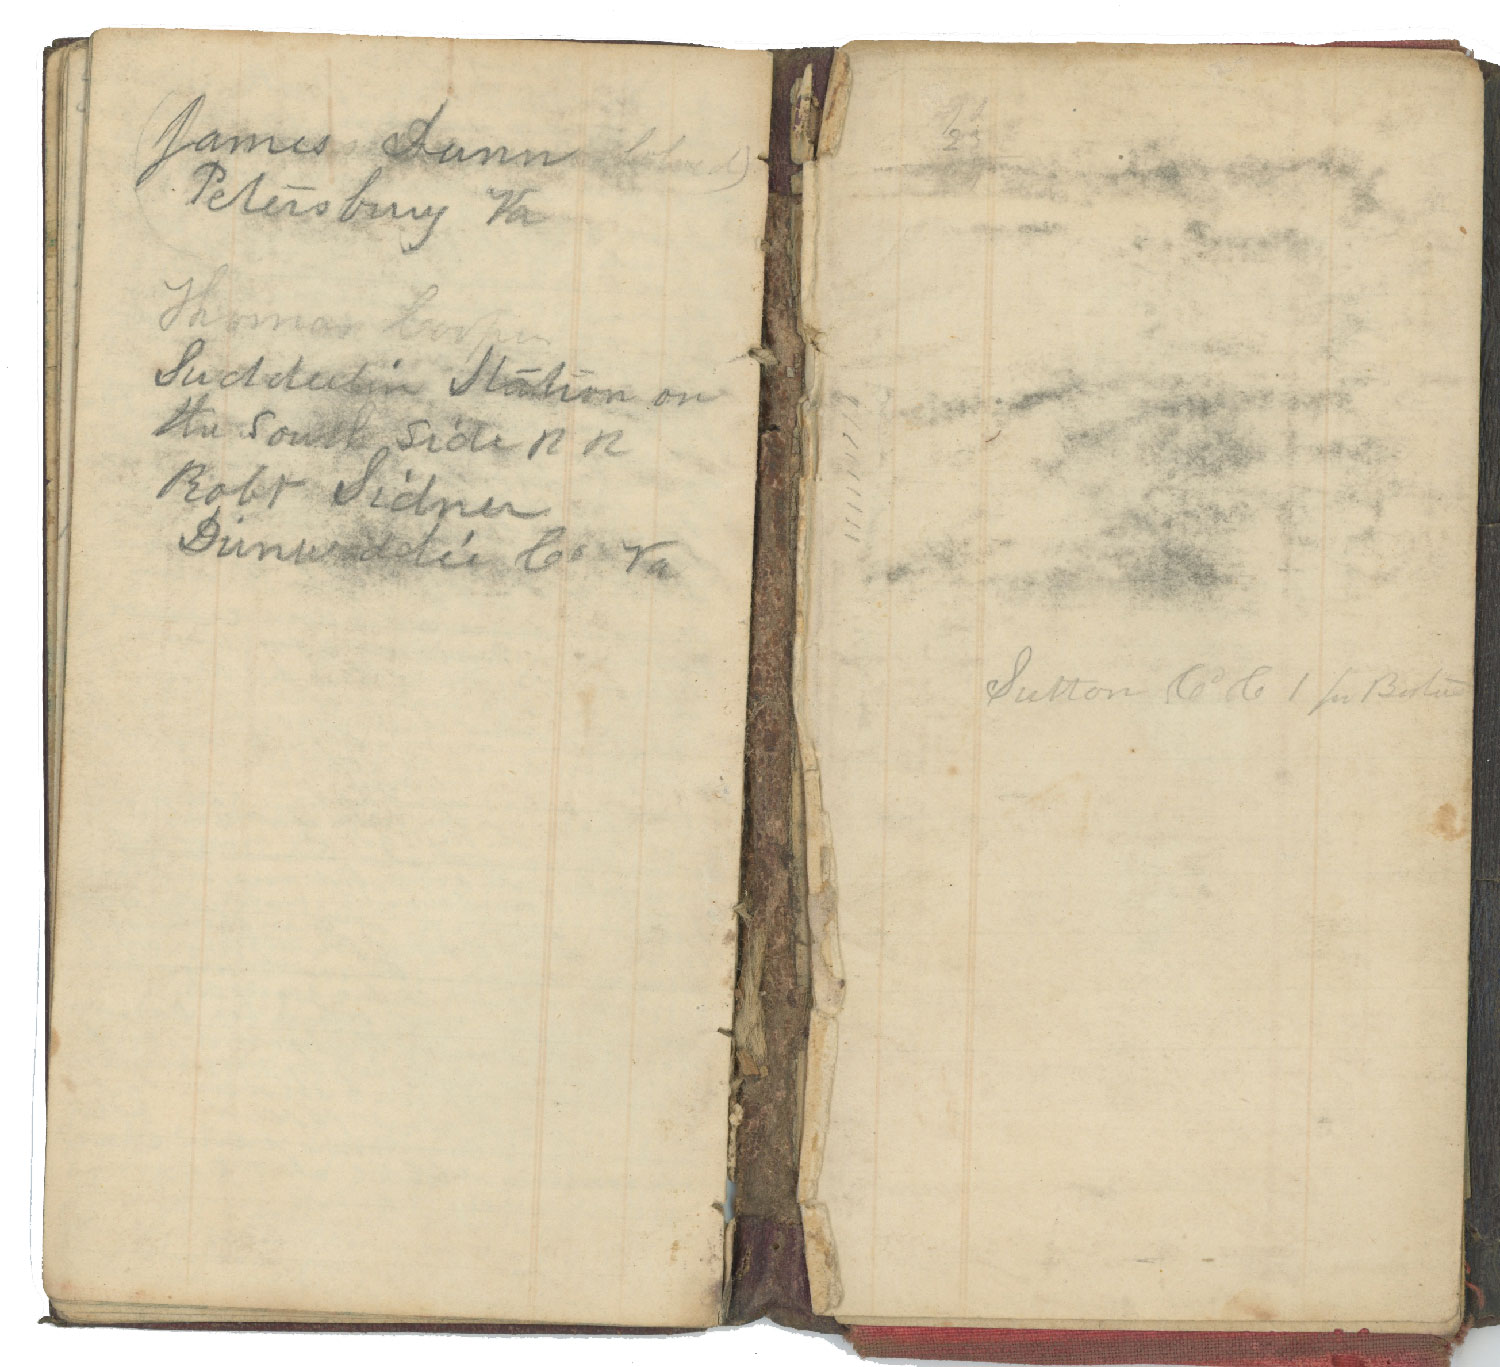 James Dunn
Petersburg Va
Thomas Cooper
Sudderlin Station on
the South side R R
Robt Sidner
Dinwiddie Co Va
Sutton Co C 1